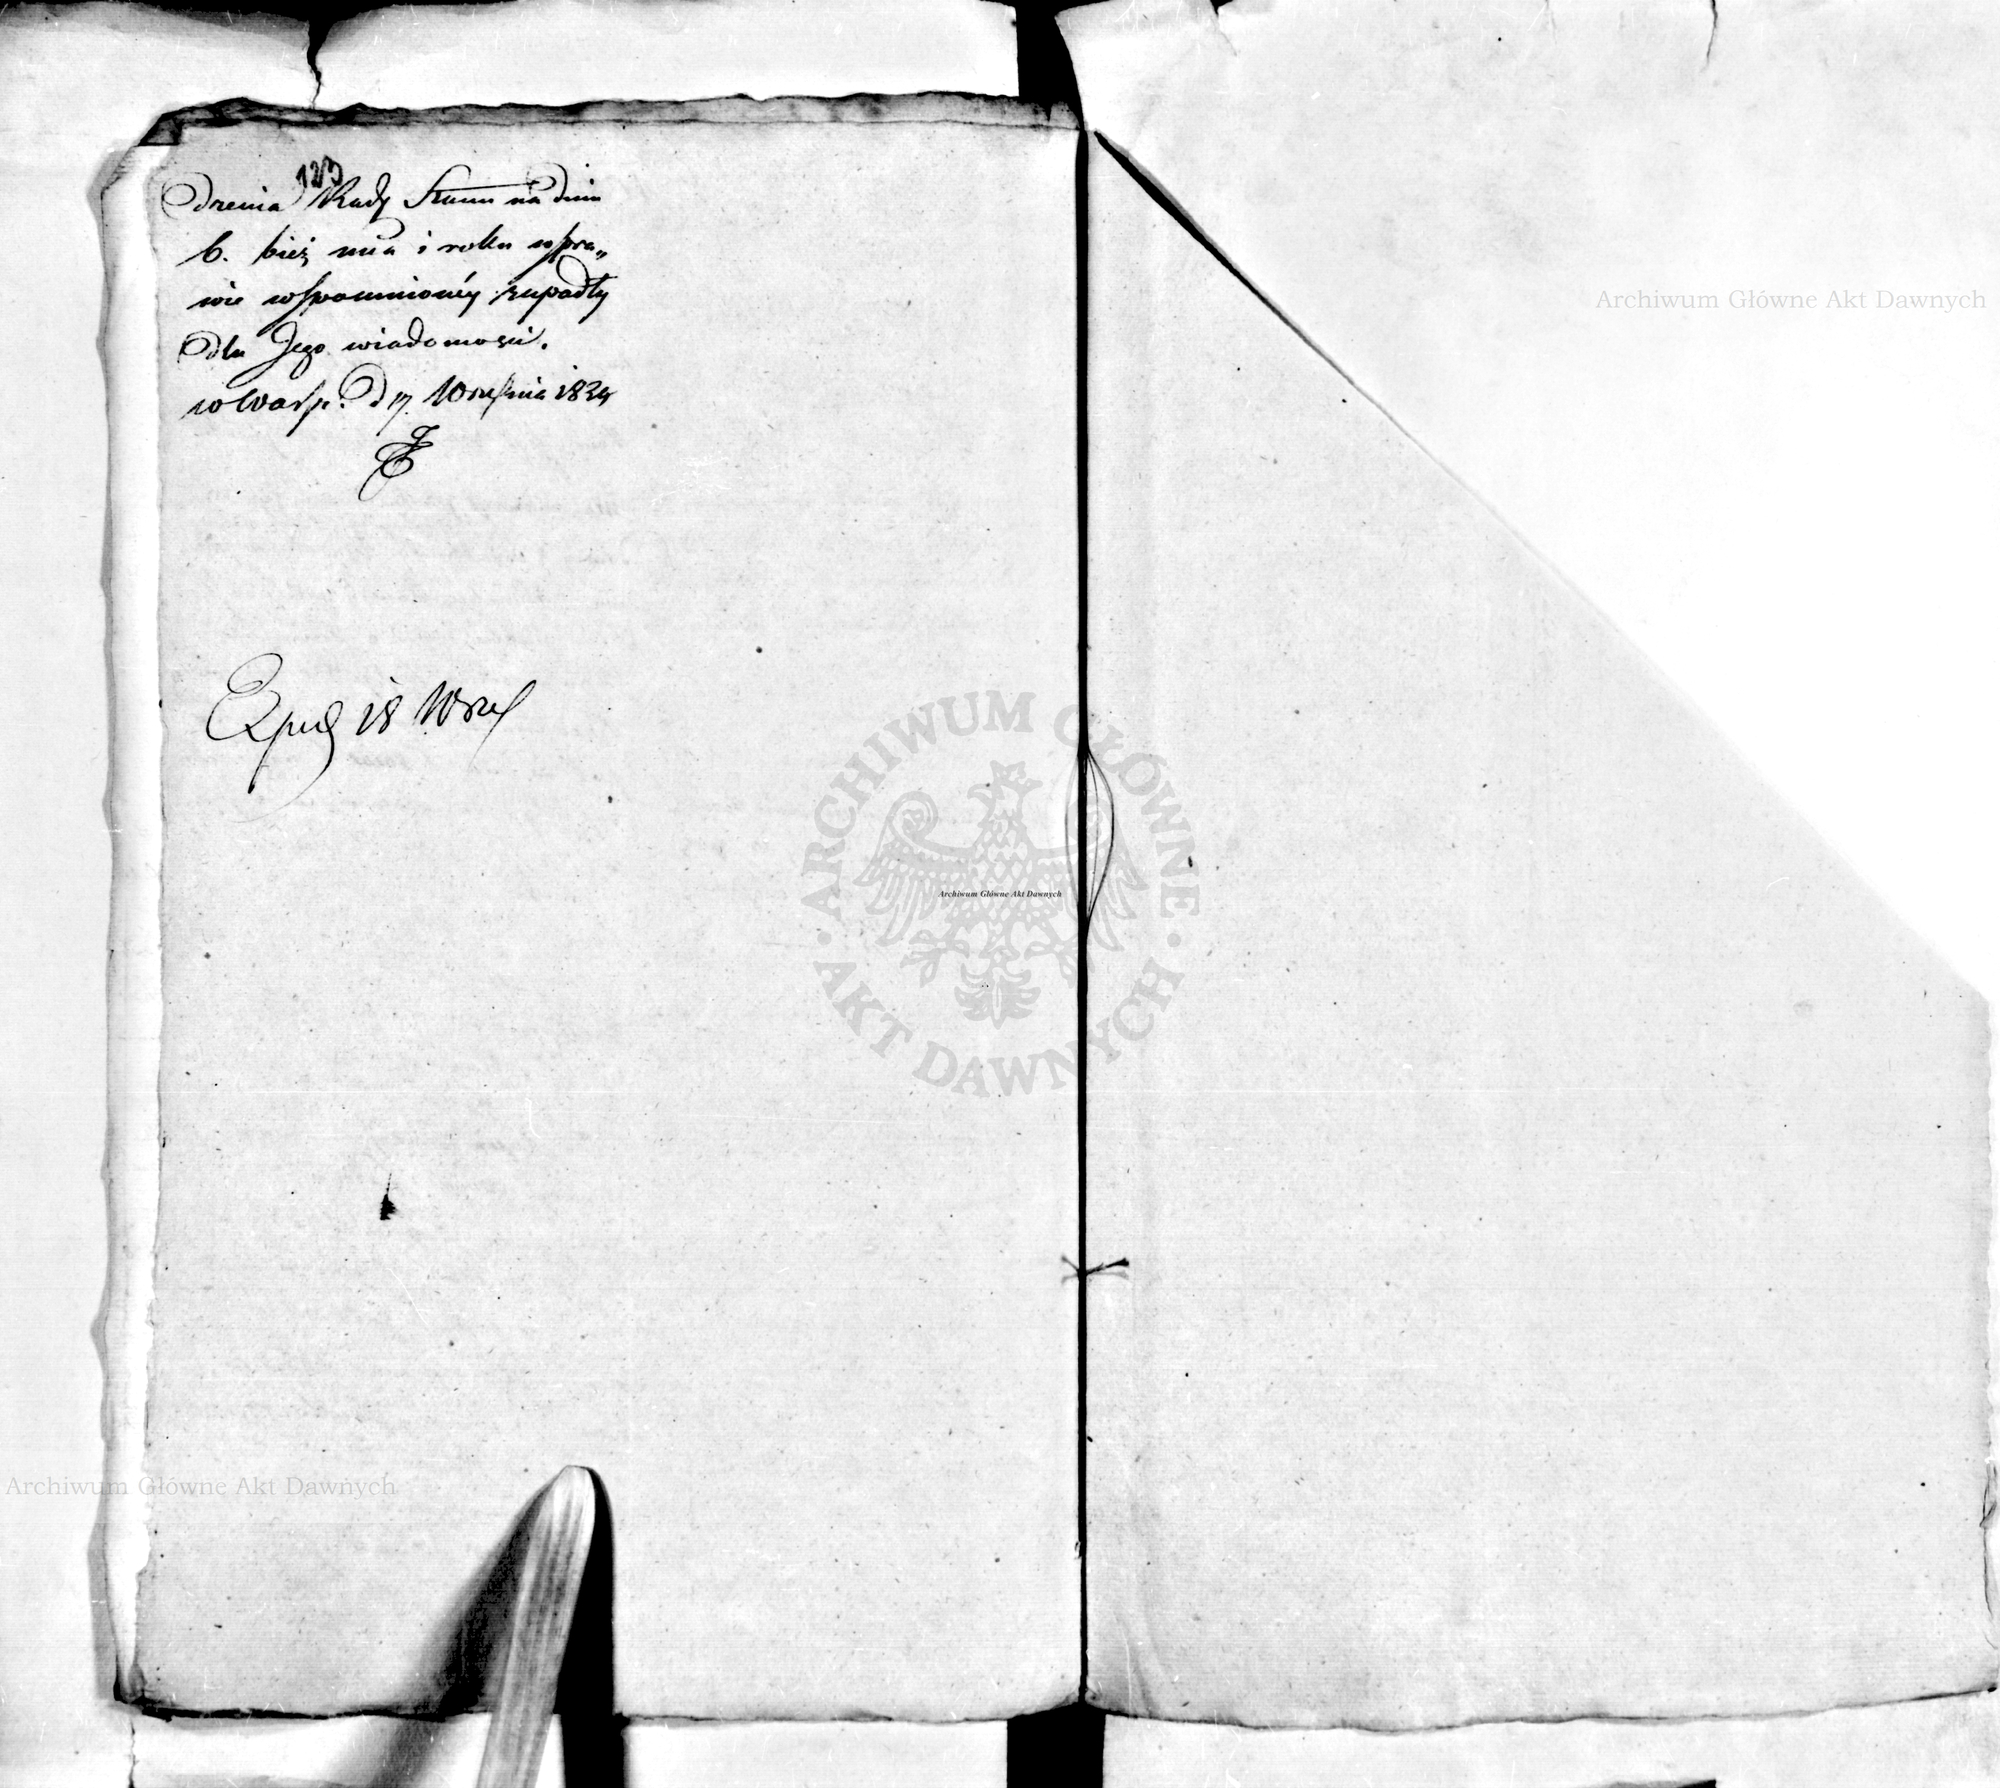 123
dzenia Rady Stanu na dniu
6. bież mca i roku w spra„
wie wspomnionéy zapadły
dla Jego wiadomości.
w Warsz. D 17. Września 1834
Exped 18 Wrześ
Archiwum Główne Akt Dawnych
ARCHIWUM GŁÓWNE AKT DAWNYCH
Archiwum Główne Akt Dawnych
Archiwum Główne Akt Dawnych